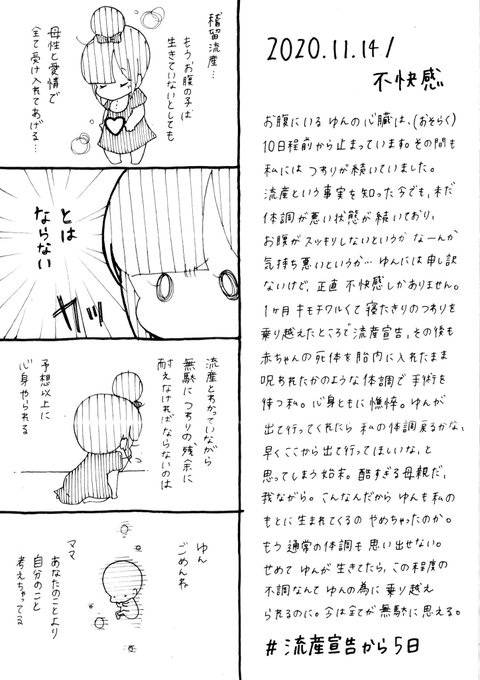 2020.11.14/
不快感
お腹にいるゆんの心臓は、(おそらく)
10日程前から止まっています。その間も
私にはつわりが続いていました。
流産という事実を知った今でも、未だ
体調が悪い状態が続いており、
お腹がスッキリしないというか なーんか
気持ち悪いというか…ゆんには申し訳
ないけど、正直 不快感しかありません。
1ヶ月キモチワルくて寝たきりのつわりを
乗り越えたところで流産宣告、その後も
赤ちゃんの死体を胎内に入れたまま
呪われたかのような体調で手術を
待つ私。心身ともに憔悴。ゆんが
出て行ってくれたら 私の体調戻るかな、
早くここから出て行ってほしいな、と
思ってしまう始末。酷すぎる母親だ、
我ながら。こんなんだから ゆんも私の
もとに生まれてくるの やめちゃったのか。
もう通常の体調も思い出せない。
せめて ゆんが生きてたら、この程度の
不調なんて ゆんの為に乗り越え
られるのに。今は全てが無駄に思える。
#流産宣告から5日
稽留流産…
もう、お腹の子は
生きていないとしても
母性と愛情で
全て受け入れてあげる…
とは
ならない
カッ
流産とわかっていながら
無駄につわりの残余に
耐えなければならないのは
予想以上に
心身やられる
ゆん
ごめんね
ママ
あなたのことより
自分のこと
考えちゃってる